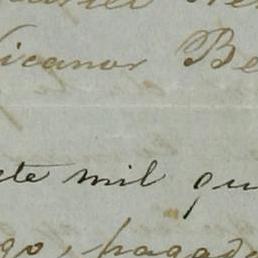 icanor Be
ete mil qu
go, pagad